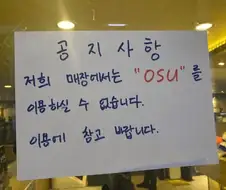 공지사항
저희 매장에서는 "OSU"를
이용하실 수 없습니다.
이용에 참고 바랍니다.